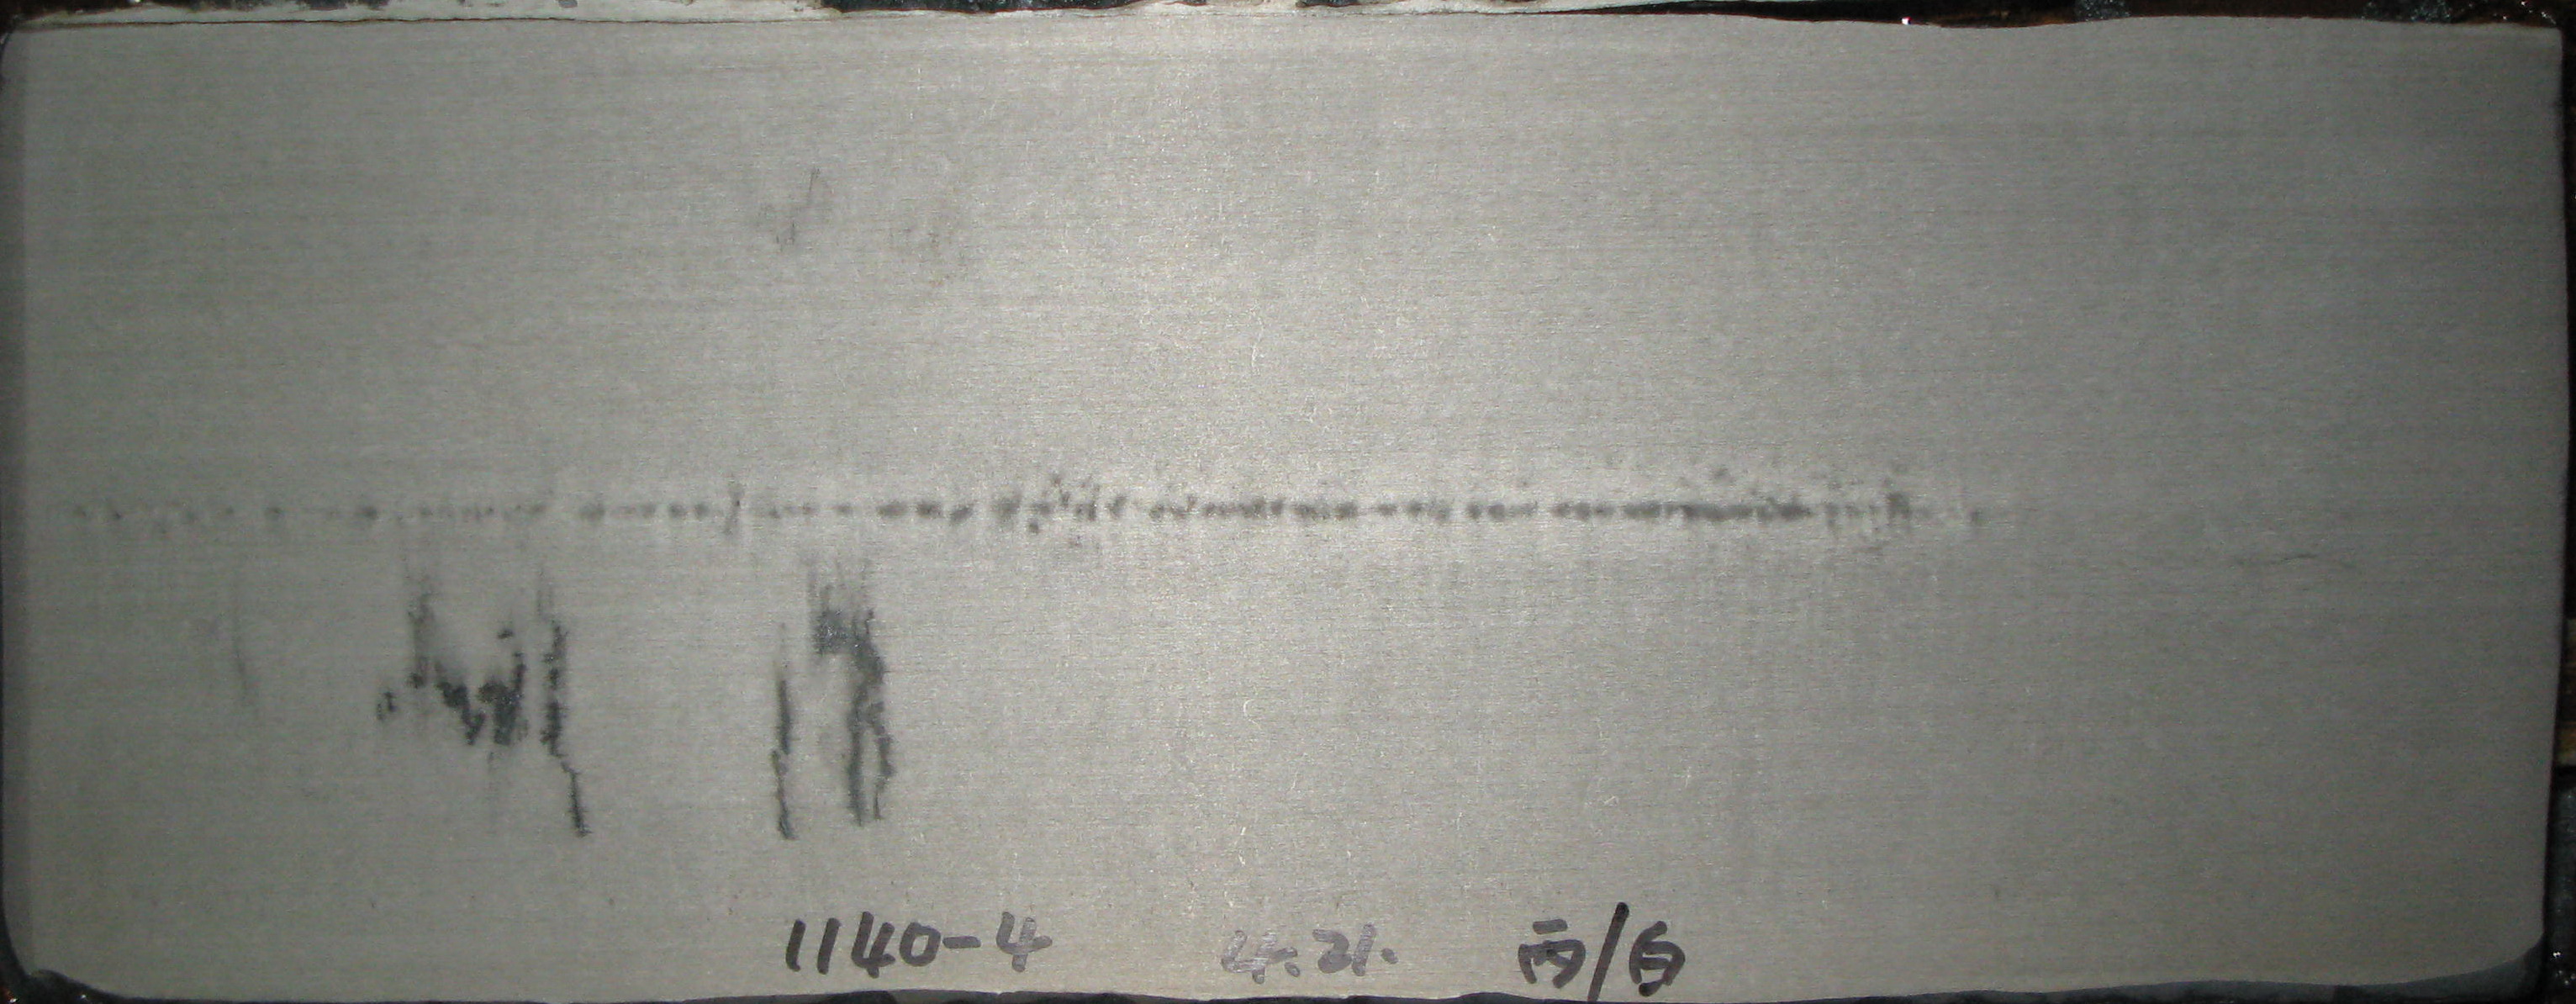 1140-4 4.21. 丙/白